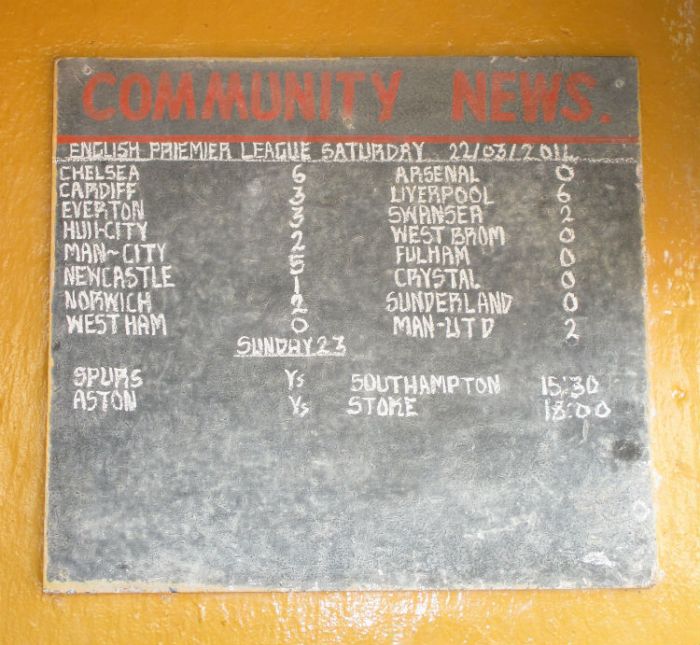 COMMUNITY NEWS.
ENGLISH PRIEMIER LEAGUE SATURDAY 22/03/2014
CHELSEA 6 ARSENAL 0
CARDIFF 3 LIVERPOOL 6
EVERTON 3 SWANSEA 2
HUII-CITY 2 WEST BROM 0
MAN~CITY 5 FULHAM 0
NEWCASTLE 1 CRYSTAL 0
NORWICH 2 SUNDERLAND 0
WEST HAM 0 MAN-UTD 2
SUNDAY 23
SPURS Vs SOUTHAMPTON 15:30
ASTON Vs STOKE 18:00